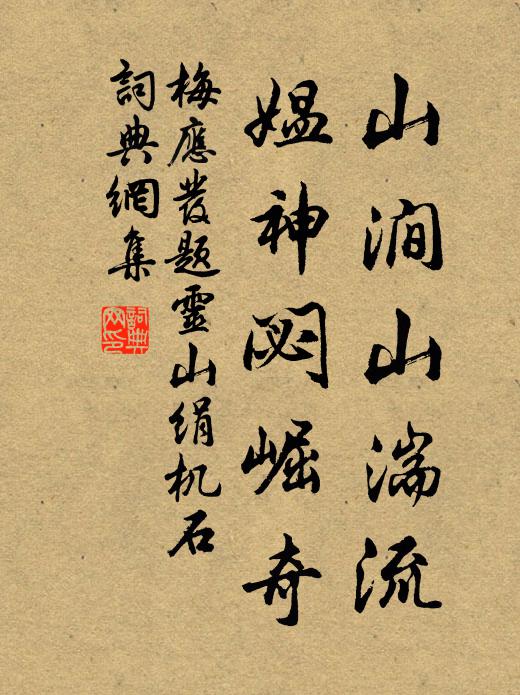 山涧山湍流
媪神閟崛奇
梅應發題靈山绢机石
詞典網集
詞典
网印